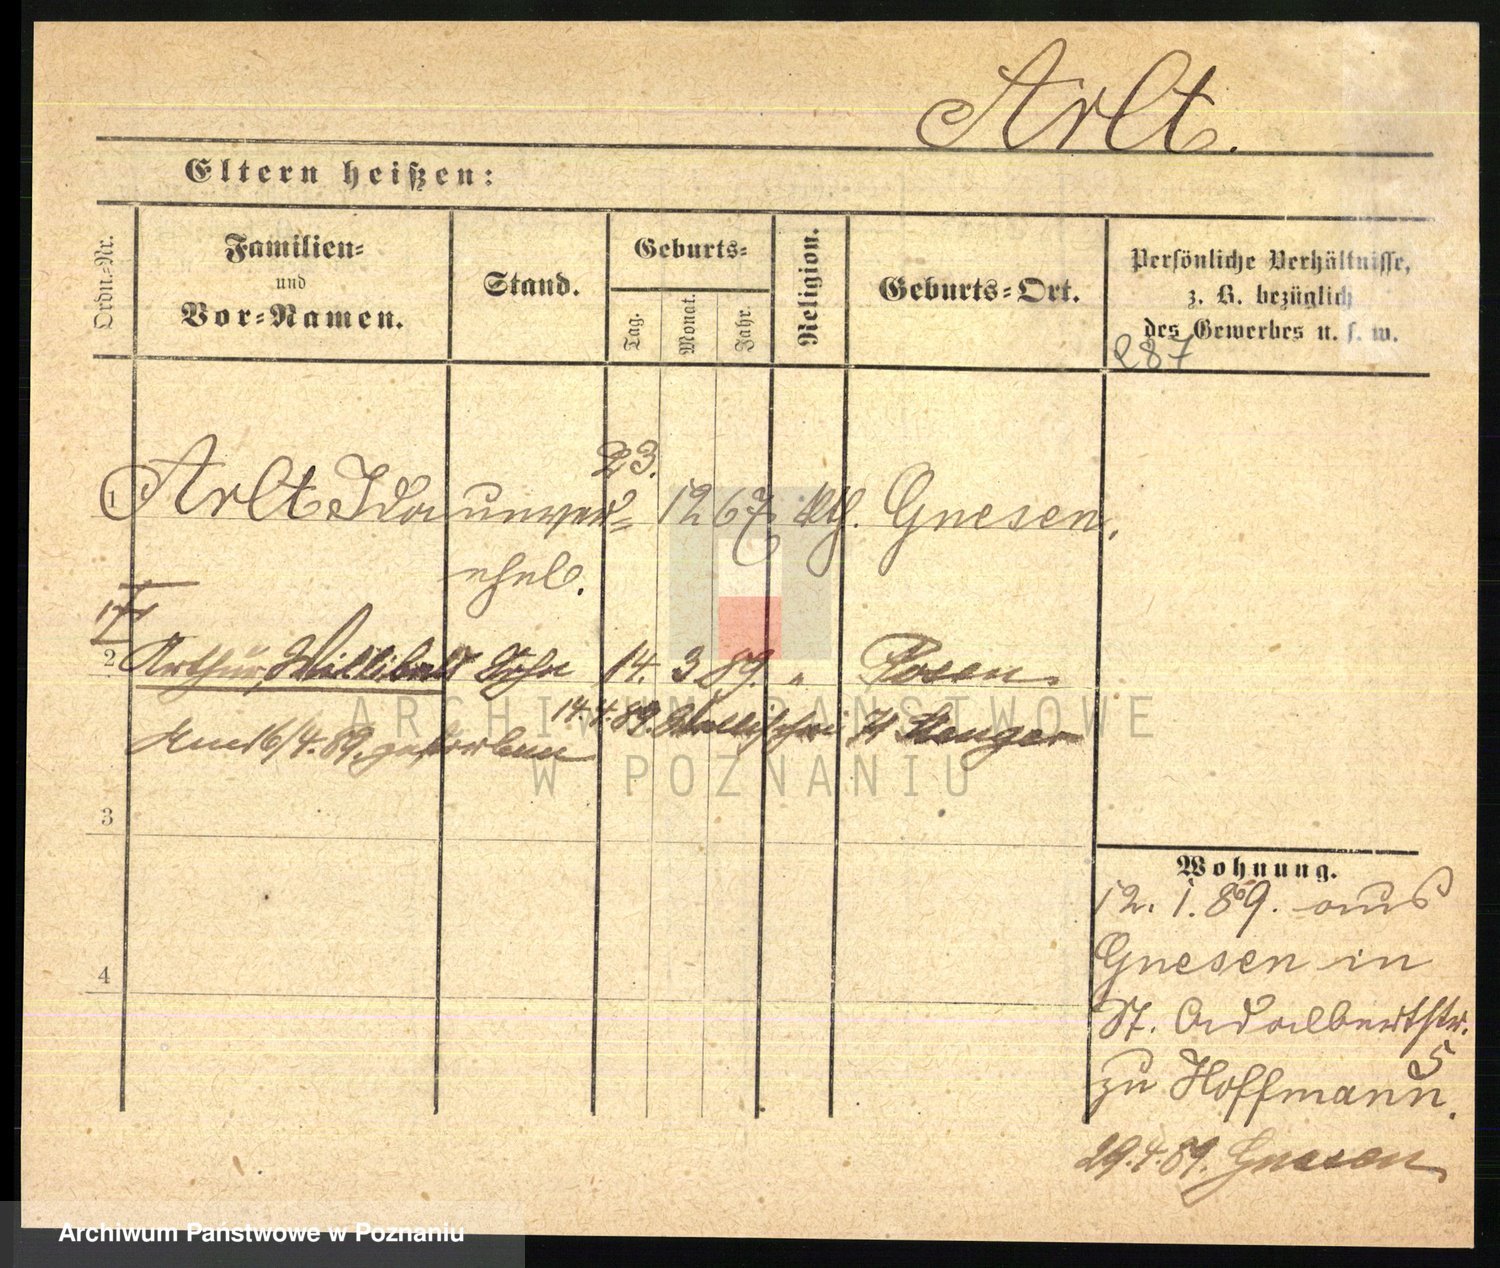 Arlt.
Eltern heißen:
Ordn.-Nr.
Familien-
und
Vor-Namen.
Stand.
Geburts-
Tag.
Monat.
Jahr.
Religion.
Geburts-Ort.
Persönliche Verhältnisse,
z. B. bezüglich
des Gewerbes u. s. w.
287
23.
1 Arlt Ida unver- 12 67 kth. Gnesen.
ehel.
2 Arthur, Willibald Sohn 14. 3 89. " Posen.
14.4.89. Wallischei 71 Menger
Am 16/4.89. gestorben
ARCHIWUM PAŃSTWOWE
W POZNANIU
3
4
Wohnung.
12. 1. 89. aus
Gnesen in
St. Adalbertstr.
5
zu Hoffmann.
29.4.89. Gnesen
Archiwum Państwowe w Poznaniu